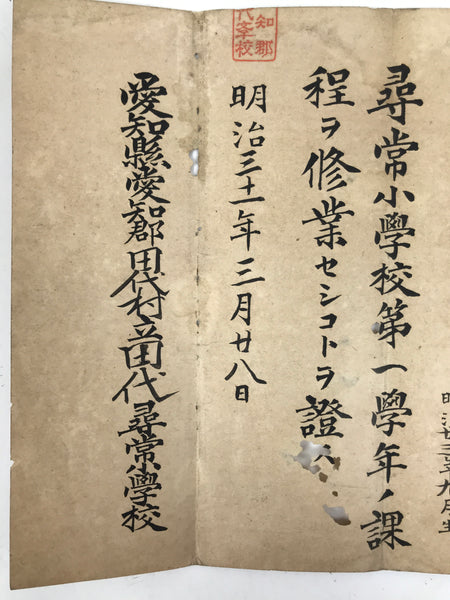 明治廿三年九月生
尋常小學校第一學年ノ課
程ヲ修業セシコトヲ證
明治三十一年三月廿八日
知郡
代校
愛知縣愛知郡田代村立田代尋常小學校